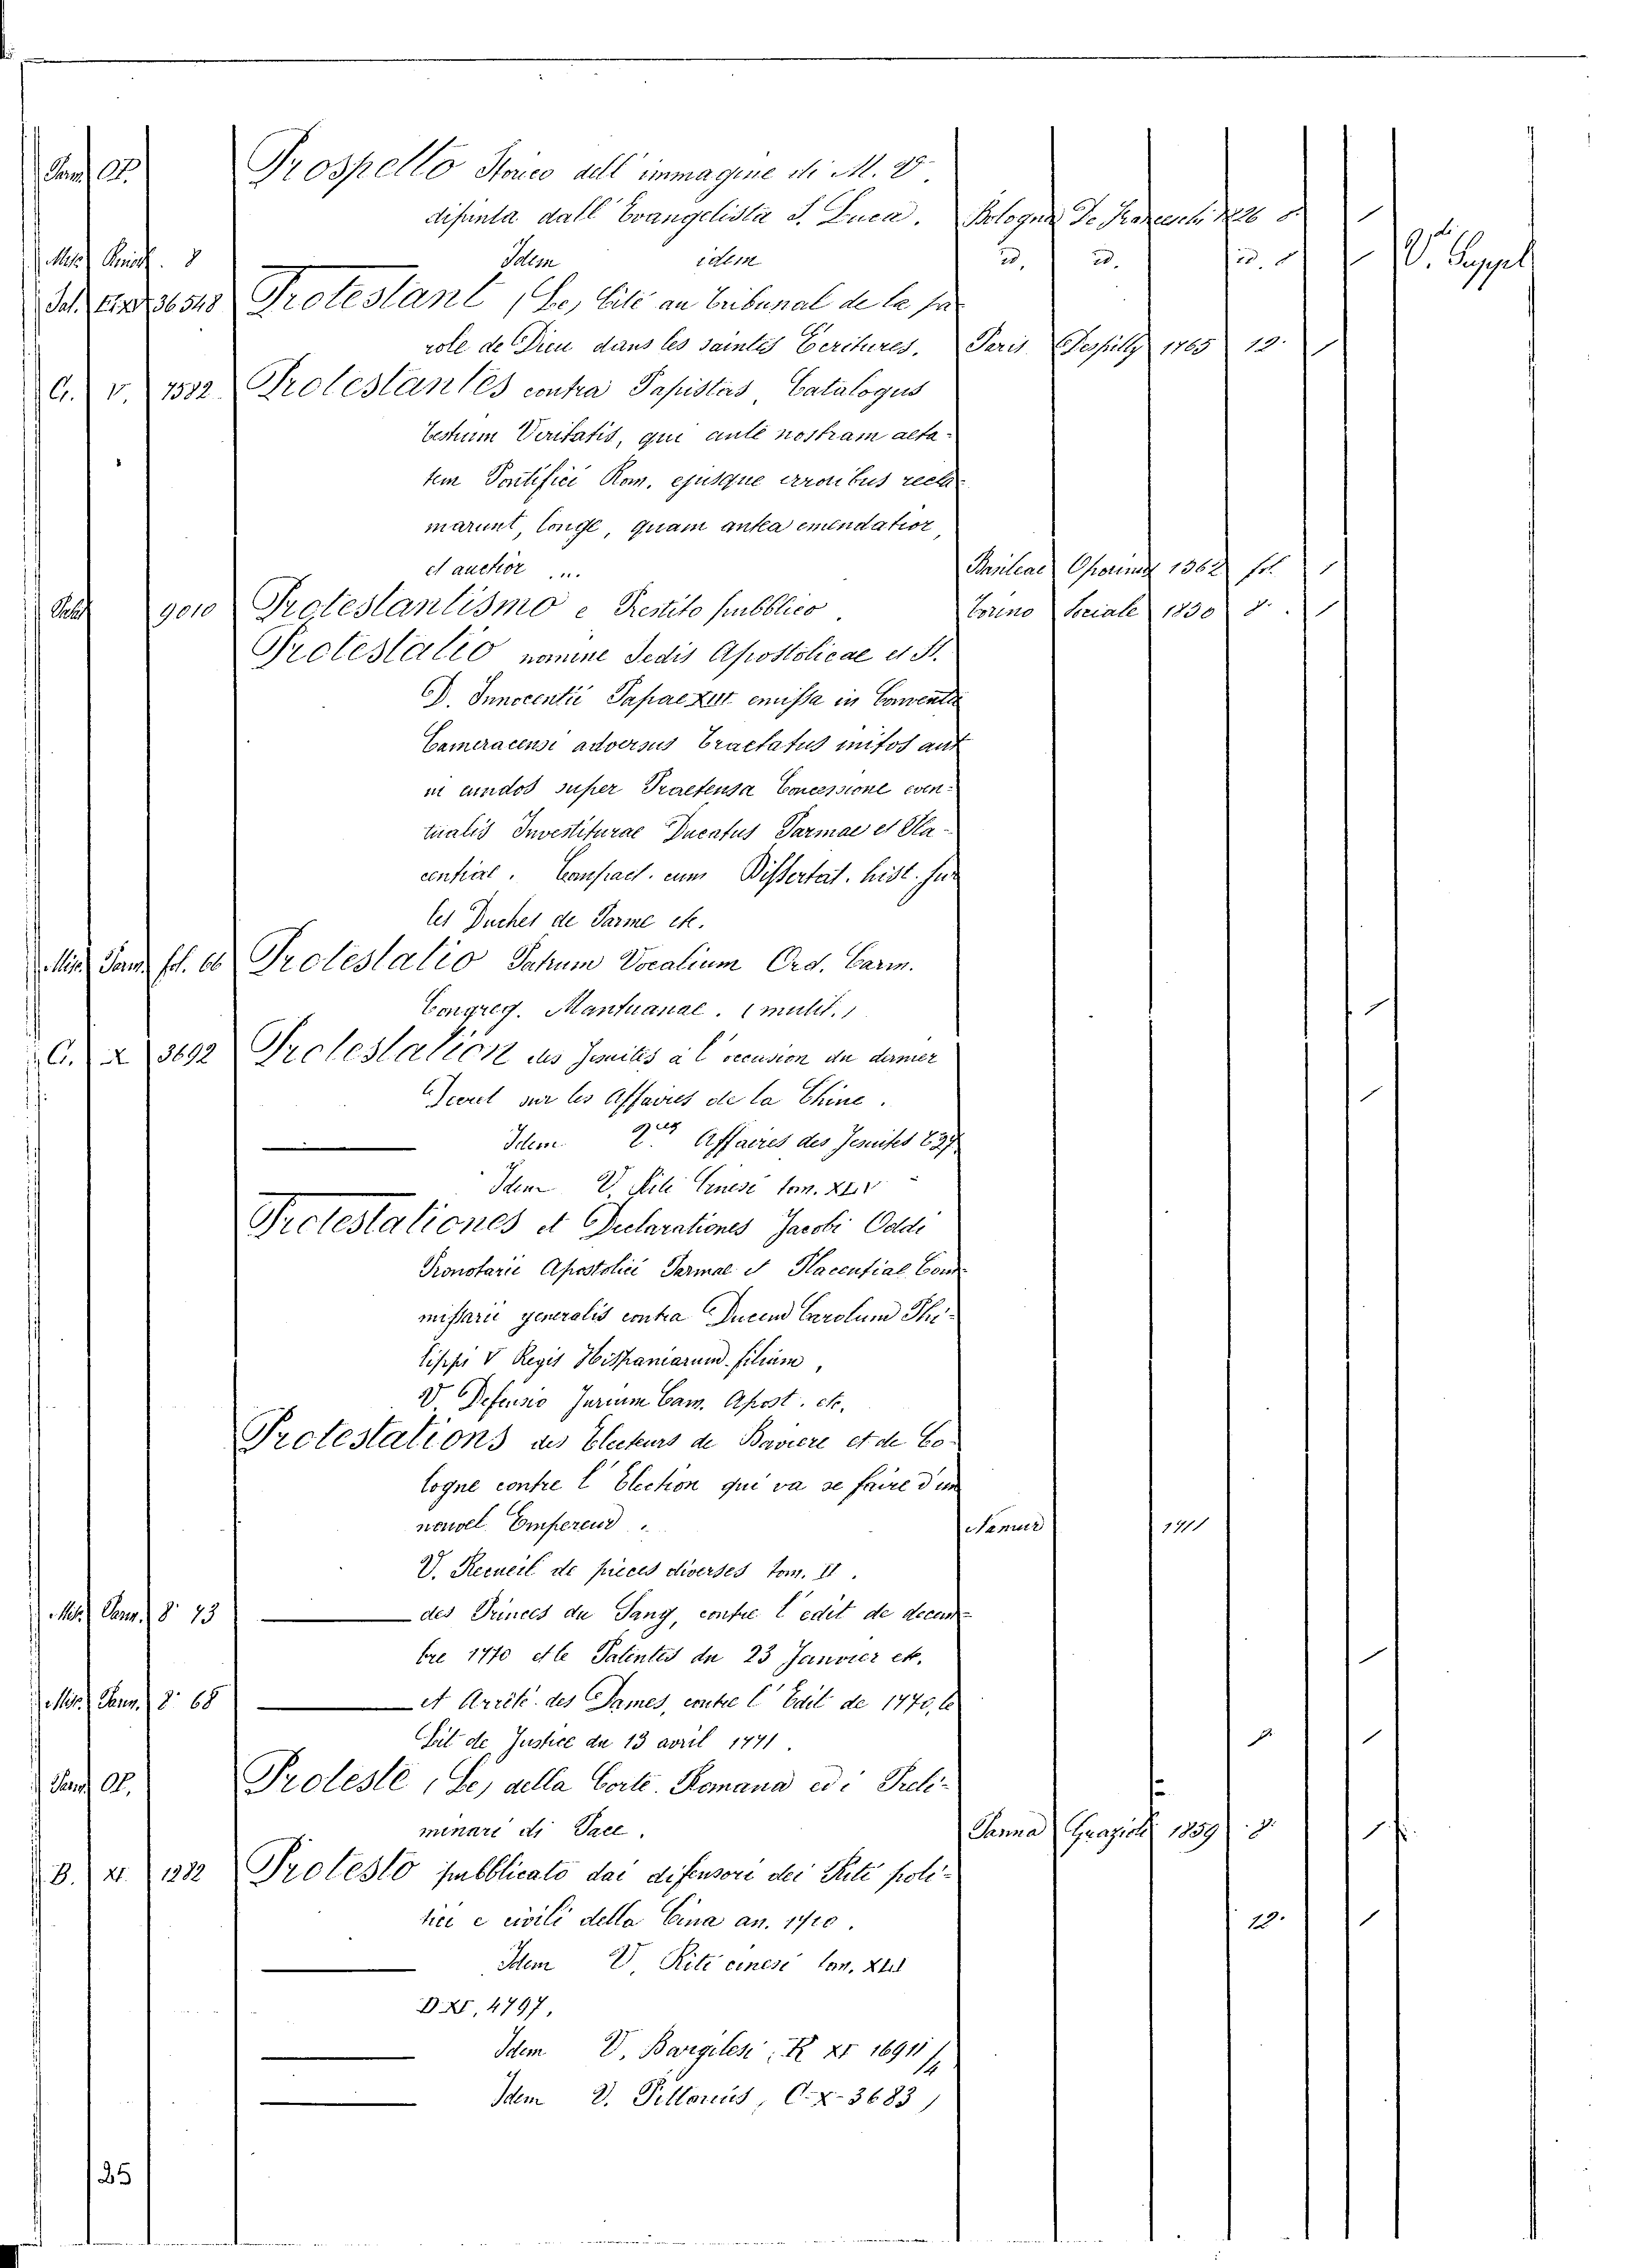 Parm. Op. Prospetto Storico dell' immagine di M. V.
dipinta dall' Evangelista S. Luca. Bologna 8.° 1
Misc. 8 Idem idem id. id. id. 1 V. Suppl
36548 Protestant, (Le, Cité au tribunal de la pa
role de Dieu dans les saintes Ecritures. Paris Despilly 1765 12. 1
G. V. 7582 Protestantes contra Papistas, Catalogus
Testium Veritatis, qui ante nostram aeta-
tem Pontifici Rom. ejusque erroribus recla
marunt, longe, quam antea emendatior,
et auctior .... Basileae Oporinus 1562 fol. 1
9010 Protestantismo e Prestito pubblico. Torino Sociale 1850 8. 1
Protestatio nomine Sedis Apostolicae et St.
D. Innocentii Papae XIII emissa in Conventu
Cameracensi adversus Tractatus initos aut
in eundos super Praetensa Concessione even-
tualis Investiturae Ducatus Parmae et Pla-
centiae. Compact. cum Dissertat. hist. sur
les Duches de Parme etc.
Misc. Parm. fol. 66 Protestatio Patrum Vocalium Ord. Carm.
Congreg. Mantuanae. (mutil.) 1
G. X 3692 Protestation des Jesuites à l'occasion du dernier
Decret sur les Affaires de la Chine. 1
Idem Affaires des Jesuites
Idem V. Riti Cinesi tom. XIV
Protestationes et Declarationes Jacobi Oddi
Pronotarii Apostolici Parmae et Placentiae Com
missarii generalis contra Ducem Carolum Phi-
lippi V Regis Hispaniarum filium,
V. Defensio Jurium Cam. Apost. etc.
Protestations des Electeurs de Baviere et de Co-
logne contre l'Election qui va se faire d'un
nouvel Empereur. Namur 1711
V. Recueil de pieces diverses tom. II.
Misc. Parm. 8.° 73 des Princes du Sang, contre l'edit de decem-
bre 1770 et le Patentes du 23 Janvier etc. 1
Misc. Parm. 8.° 68 et Arrêté des Dames, contre l'Edit de 1770, le
Lit de Justice du 13 avril 1771. 8. 1
Parm. Op. Proteste, (Le, della Corte Romana ed i Preli-
minari di Pace. Parma Grazioli 1859 8. 1
B. XI. 1282 Protesto pubblicato dai difensori dei Riti poli-
tici e civili della Cina an. 1710. 12. 1
Idem V. Riti cinesi tom. XIII
D. XI, 4797,
Idem V. Bargilesi, R XI 16911/4
Idem V. Pittonius, C. X. 3683)
25